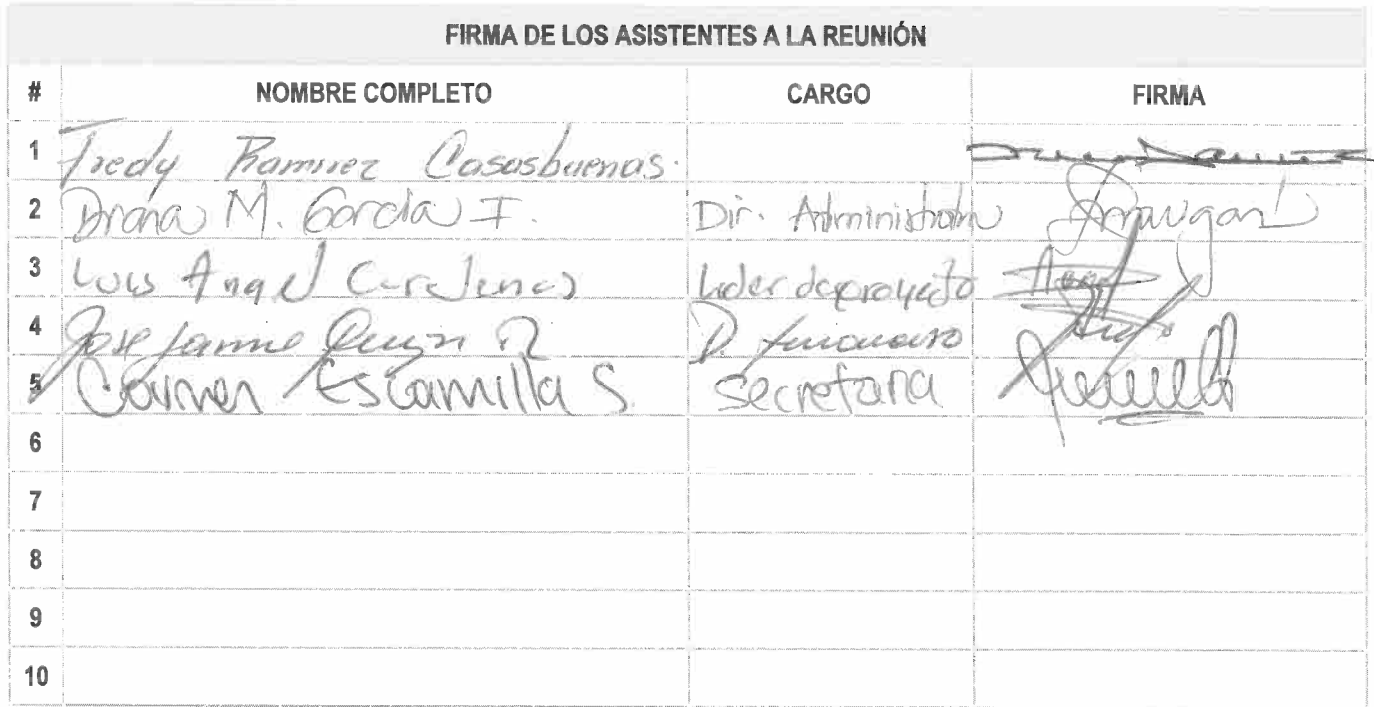 FIRMA DE LOS ASISTENTES A LA REUNIÓN
# NOMBRE COMPLETO CARGO FIRMA
1 Fredy Ramirez Casasbuenas.
2 Diana M. Garcia I. Dir. Administrativ
3 Luis Angel Cardenas Lider de proyecto
4 Jose Jaime R D. financiero
5 Carmen Escamilla S. Secretaria
6
7
8
9
10